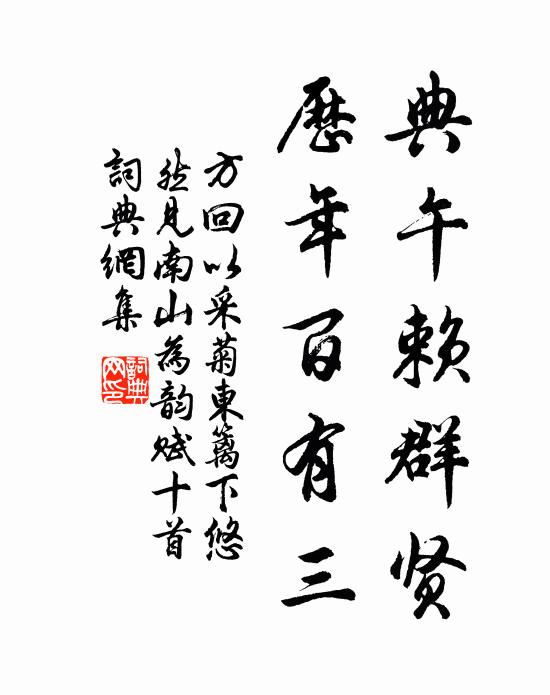 典午赖群贤
歷年百有三
方回以采菊東篱下悠
然見南山為韵赋十首
詞典網集
詞典網印